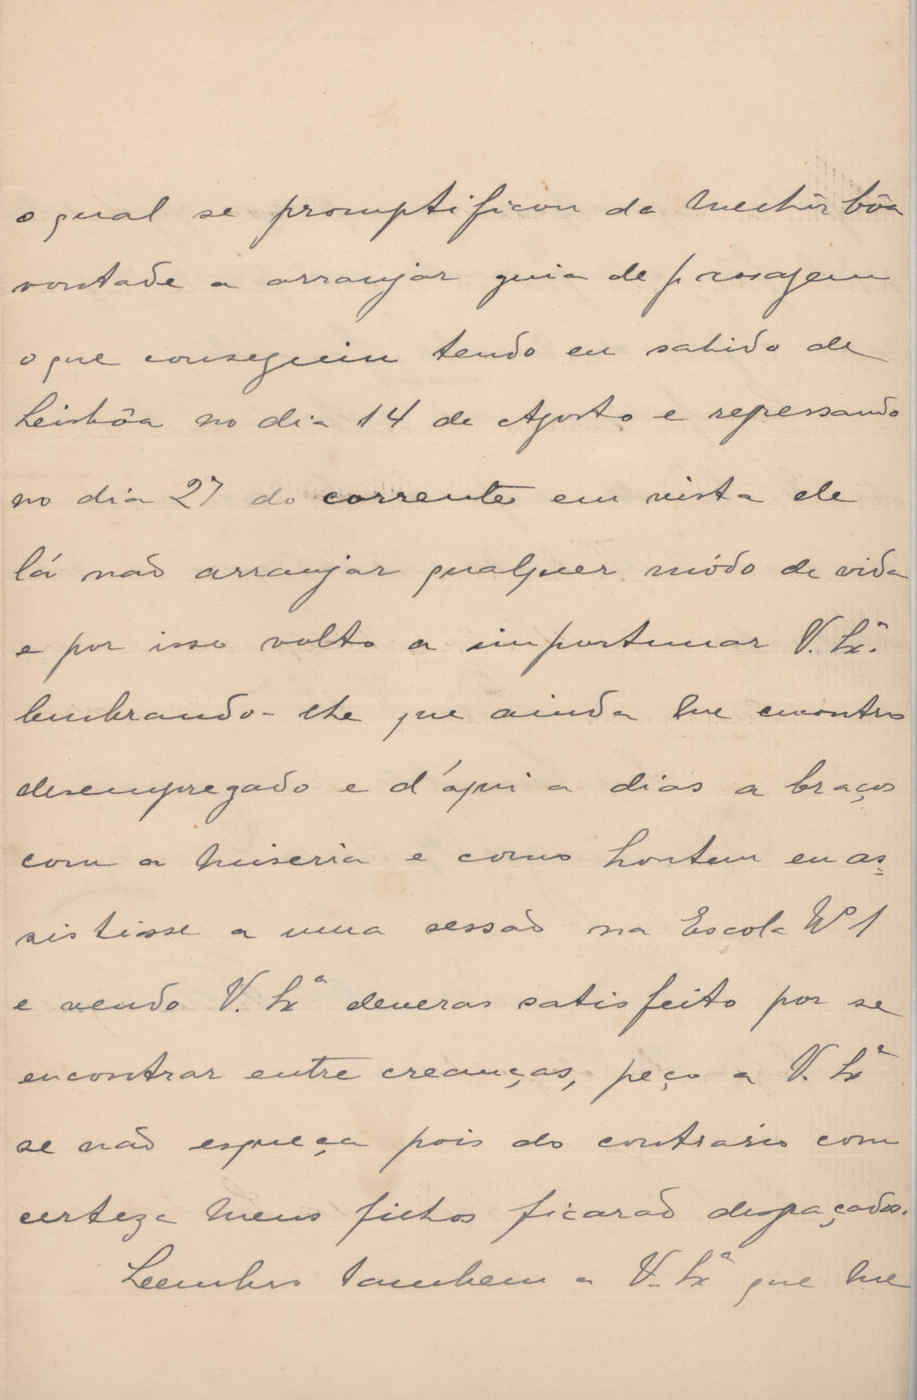 o qual se promptificou da melhór bôa
vontade a arranjar guia de passagem
o que conseguiu tendo eu sahido de
Leisbôa no dia 14 de Agosto e regressando
no dia 27 do corrente em vista de
lá não arranjar qualquer módo de vida
e por isso volto a importunar V. Exª.
lembrando-lhe que ainda me encontro
desempregado e d'áqui a dias a braços
com a miseria e como hontem eu as=
sistisse a uma sessão na Escola Nº 1
e vendo V. Exª deveras satisfeito por se
encontrar entre creanças, peço a V. Exª
se não esqueça pois do contrario com
certeza meus filhos ficarão desgraçados.
Leembro tambem a V. Exª que me